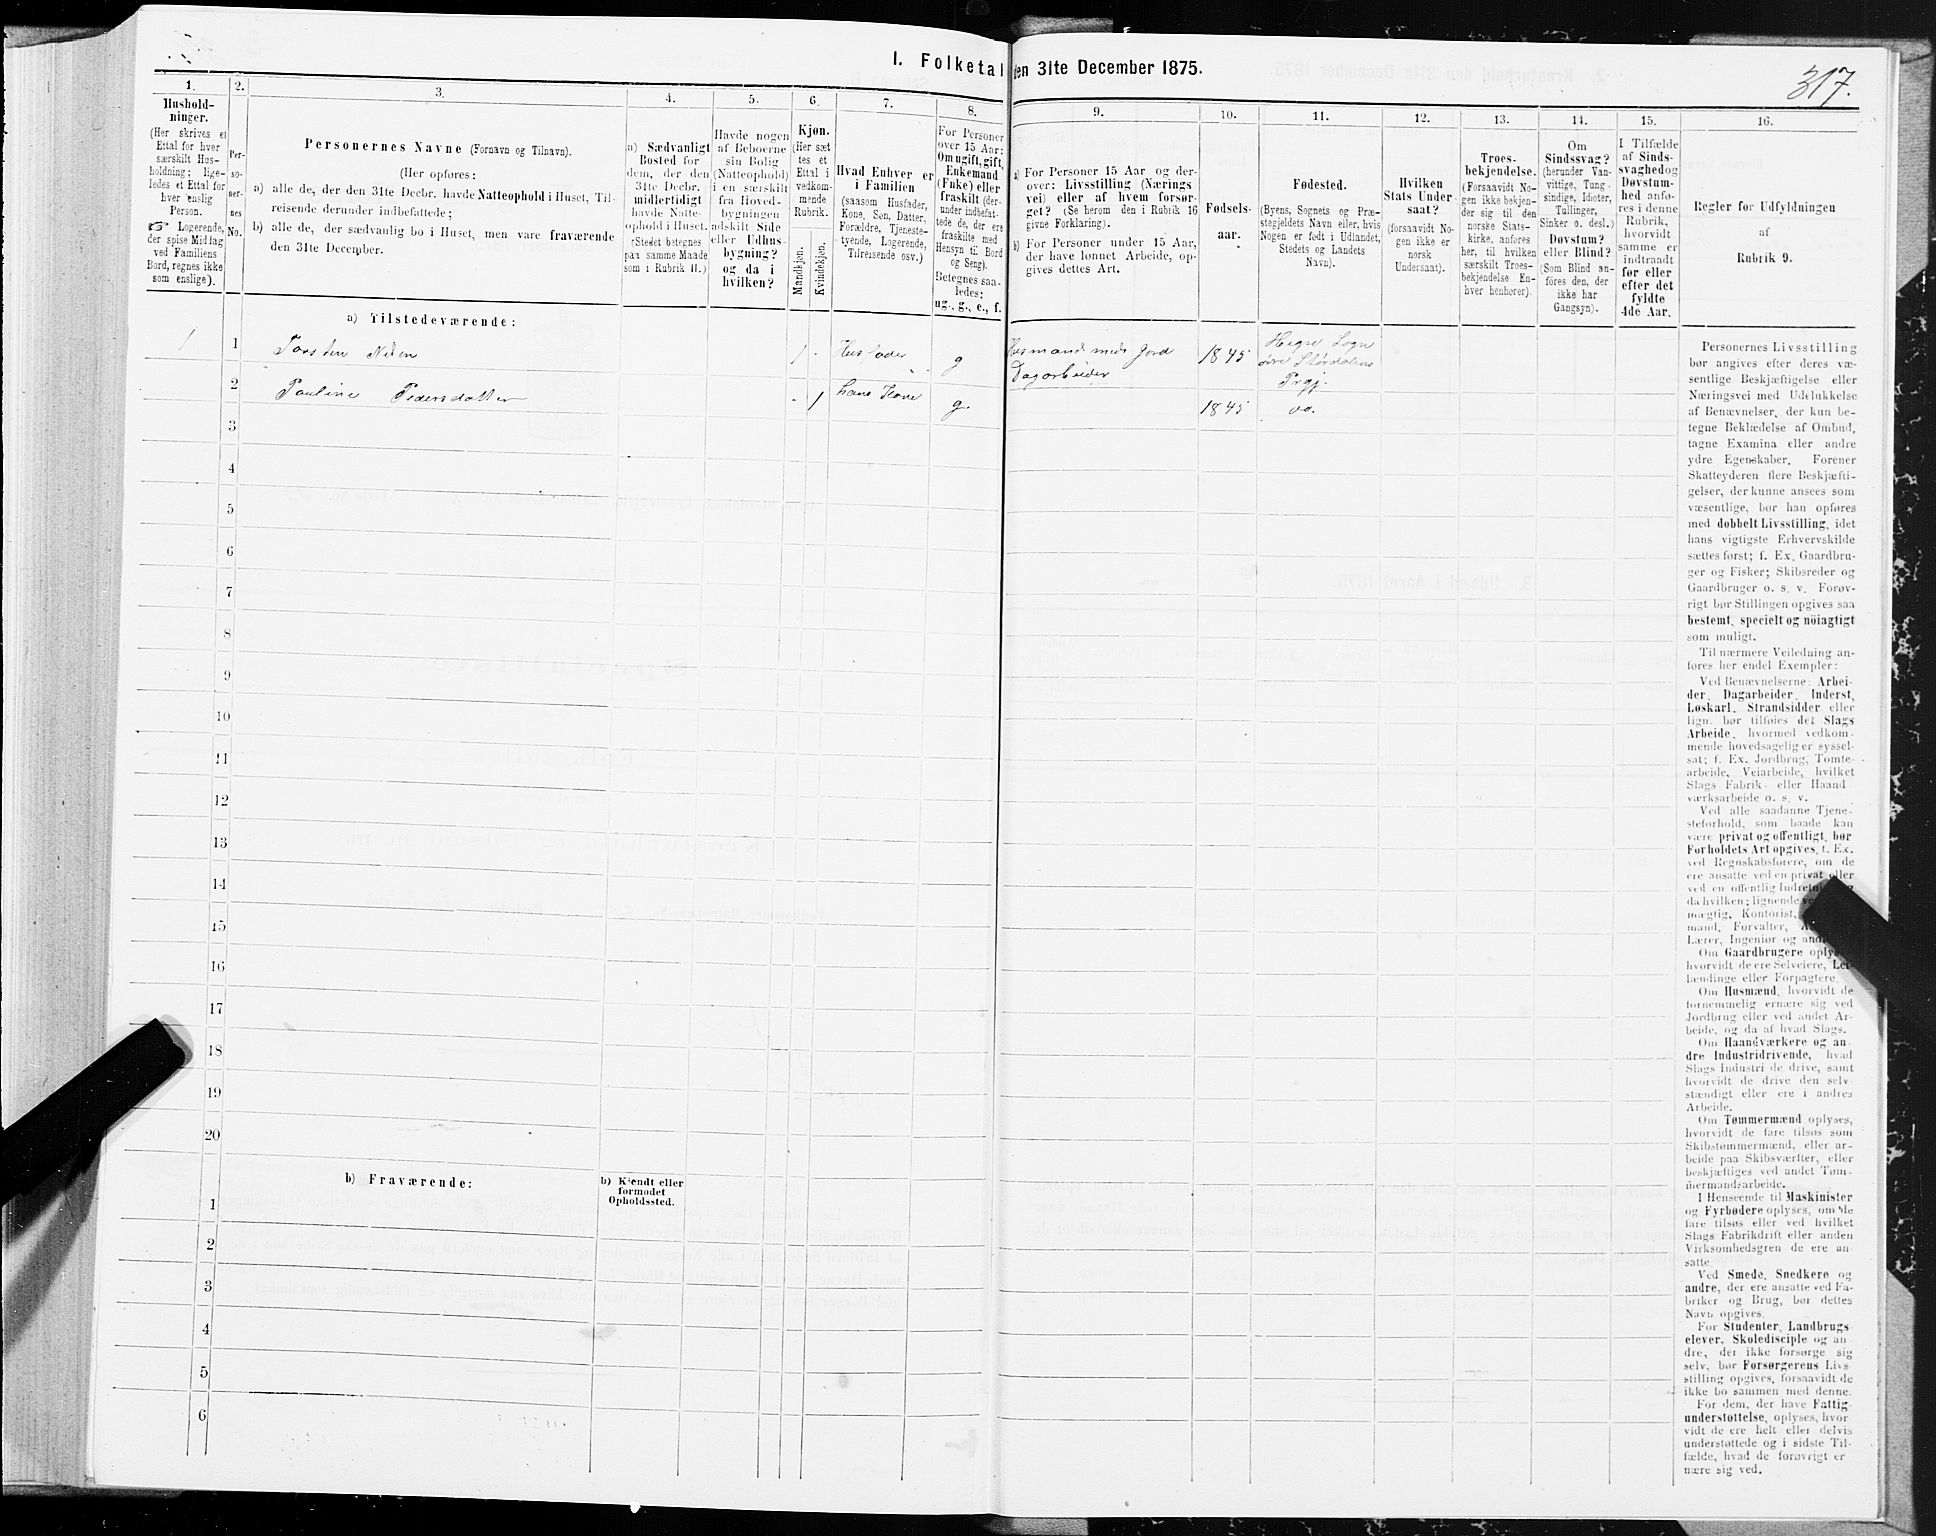 I. Folketal den 31te December 1875.
317.
1.
Hushold-
ninger.
(Her skrives et
Ettal for hver
særskilt Hus-
holdning; lige-
ledes et Ettal for
hver enslig
Person.
☞ Logerende,
der spise Middag
ved Familiens
Bord, regnes ikke
som enslige).
2.
Per-
so-
ner-
nes
No.
3.
Personernes Navne (Fornavn og Tilnavn).
(Her opføres:
a) alle de, der den 31te Decbr. havde Natteophold i Huset, Til-
reisende derunder indbefattede;
b) alle de, der sædvanlig bo i Huset, men vare fraværende
den 31te December.
4.
a) Sædvanligt
Bosted for
dem, der den
31te Decbr.
midlertidigt
havde Natte-
ophold i Huset.
(Stedet betegnes
paa samme Maade
som i Rubrik 11.)
5.
Havde nogen
af Beboerne
sin Bolig
(Natteophold)
i en særskilt
fra Hoved-
bygningen
adskilt Side
eller Udhus-
bygning?
og da i
hvilken?
6.
Kjøn.
(Her sæt
tes et
Ettal i
vedkom-
mende
Rubrik.
Mandkjøn.
Kvindekjøn.
7.
Hvad Enhver er
i Familien
(saasom Husfader,
Kone, Søn, Datter,
Forældre, Tjeneste-
tyende, Logerende,
Tilreisende osv.)
8.
For Personer
over 15 Aar:
Om ugift, gift,
Enkemand
(Enke) eller
fraskilt (der-
under indbefat-
tede de, der ere
fraskilte med
Hensyn til Bord
og Seng).
Betegnes saa-
ledes:
ug., g., e., f.
9.
a) For Personer 15 Aar og der-
over: Livsstilling (Nærings
vei) eller af hvem forsør-
get? (Se herom den i Rubrik 16
givne Forklaring).
b) For Personer under 15 Aar,
der have lønnet Arbeide, op-
gives dettes Art.
10.
Fødsels-
aar.
11.
Fødested.
(Byens, Sognets og Præ-
stegjeldets Navn eller, hvis
Nogen er født i Udlandet,
Stedets og Landets
Navn).
12.
Hvilken
Stats Under
saat?
(forsaavidt No-
gen ikke er
norsk
Undersaat).
13.
Troes-
bekjendelse.
(Forsaavidt No-
gen ikke bekjen-
der sig til den
norske Stats-
kirke, anføres
her, til hvilken
særskilt Troes-
bekjendelse En-
hver henhører).
14.
Om
Sindssvag?
(herunder Van-
vittige, Tung-
sindige, Idioter,
Tullinger,
Sinker o. desl.)
Døvstum?
eller Blind?
(Som Blind an-
føres den, der
ikke har
Gangsyn).
15.
I Tilfælde
af Sinds-
svaghed og
Døvstum-
hed anfø-
res i denne
Rubrik,
hvorvidt
samme er
indtraadt
før eller
efter det
fyldte
4de Aar.
16.
Regler for Udfyldningen
af
Rubrik 9.
a) Tilstedeværende:
1 1 Torsten Nilsen 1 · Husfader g Husmand med Jord 1845 Hegre Sogn
Dagarbeider øvre Størdalens
Prgj.
2 Pauline Pedersdatter · 1 hans Kone g. 1845 do.
3
4
5
6
7
8
9
10
11
12
13
14
15
16
17
18
19
20
b) Fraværende:
b) Kjendt eller
formodet
Opholdssted.
1
2
3
4
5
6
Personernes Livsstilling
bør angives efter deres væ-
sentlige Beskjæftigelse eller
Næringsvei med Udelukkelse
af Benævnelser, der kun be-
tegne Beklædelse af Ombud,
tagne Examina eller andre
ydre Egenskaber. Forener
Skatteyderen flere Beskjæfti-
gelser, der kunne ansees som
væsentlige, bør han opføres
med dobbelt Livsstilling, idet
hans vigtigste Erhvervskilde
sættes først; f. Ex. Gaardbru-
ger og Fisker; Skibsreder og
Gaardbruger o. s. v. Forøv-
rigt bør Stillingen opgives saa
bestemt, specielt og nöiagtigt
som muligt.
Til nærmere Veiledning an-
føres her endel Exempler:
Ved Benævnelserne: Arbei-
der, Dagarbeider, Inderst,
Løskarl, Strandsidder eller
lign. bør tilføies det Slags
Arbeide, hvormed vedkom-
mende hovedsagelig er syssel-
sat; f. Ex. Jordbrug, Tomte-
arbeide, Veiarbeide, hvilket
Slags Fabrik- eller Haand
værksarbeide o. s. v.
Ved alle saadanne Tjene-
steforhold, som baade kan
være privat og offentligt, bør
Forholdets Art opgives, t. Ex.
ved Regnskabsførere, om de
ere ansatte ved en privat eller
ved en offentlig
da hvilken; lignende
mægtig, Kontorist,
mand, Forvalter,
Lærer, Ingeniør og
Om Gaardbrugere
hvorvidt de ere Selveiere, Lei-
lændinge eller Forpagtere.
Om Husmænd, hvorvidt de
fornemmelig ernære sig ved
Jordbrug eller ved andet Ar-
beide, og da af hvad Slags.
Om Haandværkere og an-
dre Industridrivende, hvad
Slags Industri de drive, samt
hvorvidt de drive den selv-
stændigt eller ere i andres
Arbeide.
Om Tømmermænd oplyses,
hvorvidt de fare tilsøs som
Skibstømmermænd, eller ar-
beide paa Skibsværfter, eller
beskjæftiges ved andet Tøm-
mermandsarbeide.
I Henseende til Maskinister
og Fyrbødere oplyses, om de
fare tilsøs eller ved hvilket
Slags Fabrikdrift eller anden
Virksomhedsgren de ere an-
satte.
Ved Smede, Snedkere og
andre, der ere ansatte ved Fa-
briker og Brug, bør dettes
Navn opgives.
For Studenter, Landbrugs-
elever, Skoledisciple og an-
dre, der ikke forsørge sig
selv, bør Forsørgerens Livs-
stilling opgives, forsaavidt de
ikke bo sammen med denne.
For dem, der have Fattig-
understøttelse, oplyses, hvor
vidt de ere helt eller delvis
understøttede og i sidste Til-
fælde, hvad de forøvrigt er
nære sig ved.